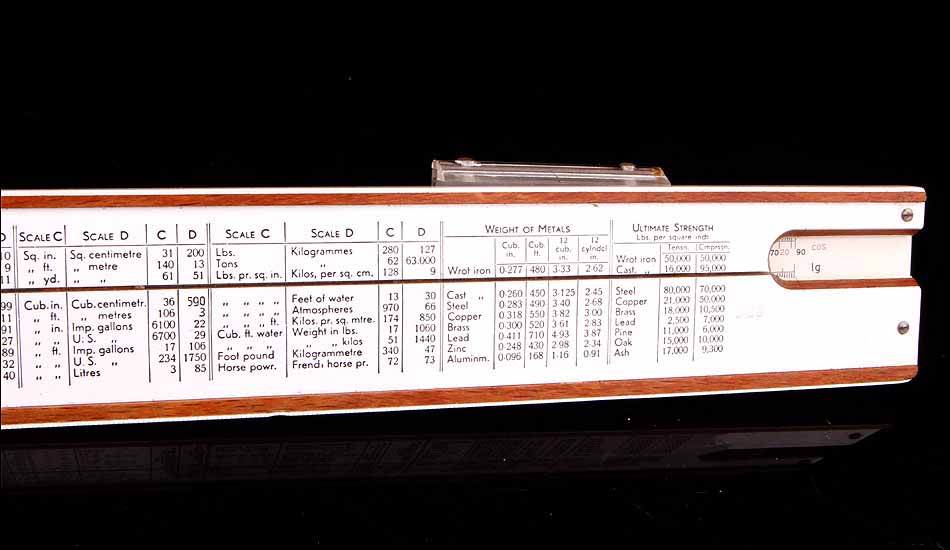 D SCALE C SCALE D C D SCALE C SCALE D C D WEIGHT OF METALS ULTIMATE STRENGTH
Lbs. per square inch
Cub. in. Cub. ft. 12 cub. in. 12 cylndcl in. Tensn. Cmprssn.
10 Sq. in. Sq. centimetre 31 200 Lbs. Kilogrammes 280 127
9 ,, ft. ,, metre 140 13 Tons ,, 62 63.000 Wrot iron 50,000 50,000
11 ,, yd. ,, ,, 61 51 Lbs. pr. sq. in. Kilos, per sq. cm. 128 9 Wrot iron 0·277 480 3·33 2·62 Cast. ,, 16,000 95,000
99 Cub. in. Cub. centimetr. 36 590 ,, ,, ,, ,, Feet of water 13 30 Cast ,, 0·260 450 3·125 2·45 Steel 80,000 70,000
11 ,, ft. ,, metres 106 3 ,, ,, ,, ,, Atmospheres 970 66 Steel 0·283 490 3·40 2·68 Copper 21,000 50,000
91 ,, in. Imp. gallons 6100 22 ,, ,, ,, ft. Kilos. pr. sq. mtre. 174 850 Copper 0·318 550 3·82 3·00 Brass 18,000 10,500
27 ,, ,, U. S. ,, 6700 29 Cub. ft. water Weight in lbs. 17 1060 Brass 0·300 520 3·61 2·83 Lead 2,500 7,000
89 ,, ft. Imp. gallons 17 106 ,, ,, ,, ,, kilos 51 1440 Lead 0·411 710 4·93 3·87 Pine 11,000 6,000
32 ,, ,, U. S. ,, 234 1750 Foot pound Kilogrammetre 340 47 Zinc 0·248 430 2·98 2·34 Oak 15,000 10,000
40 ,, ,, Litres 3 85 Horse powr. French horse pr. 72 73 Aluminm. 0·096 168 1·16 0·91 Ash 17,000 9,300
70 20 90 cos
lg